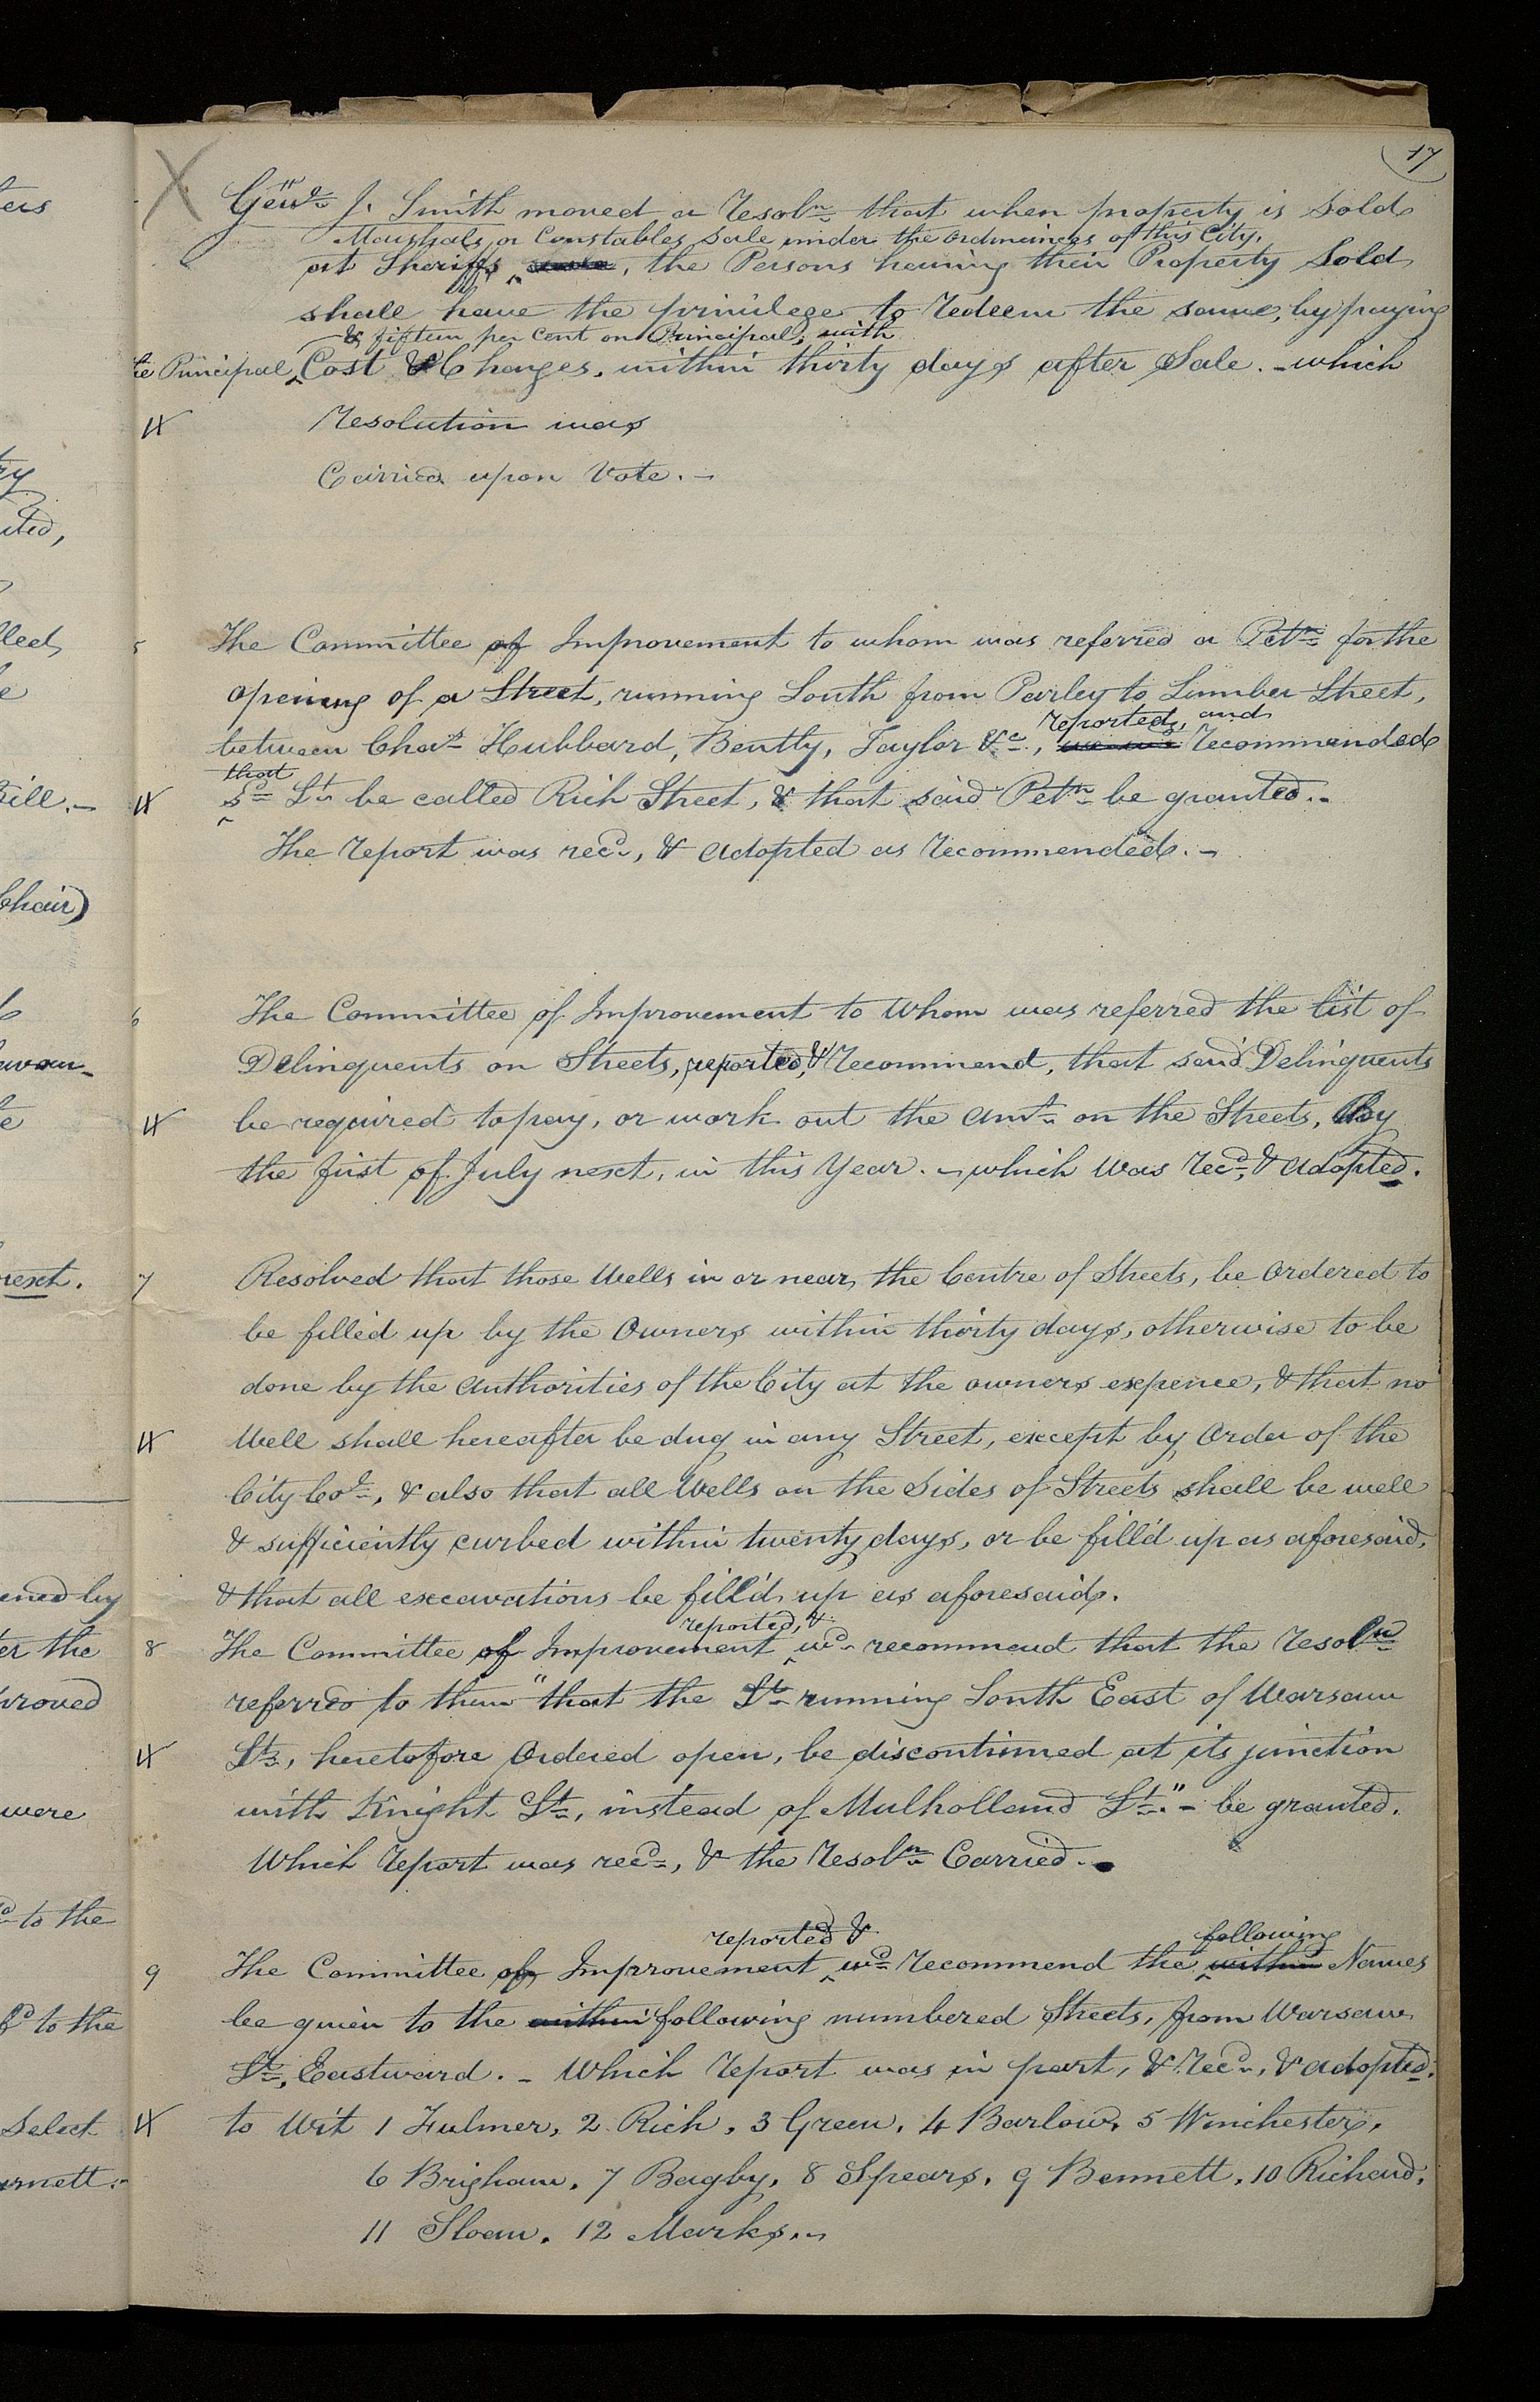 17
Genl. J. Smith moved a Resoln. that when property is Sold
Marshals, or Constables Sale under the ordinances of this City,
at Sheriffs, the Persons having their Property Sold
shall have the privilege to Redeem the same, by paying
& fifteen per cent on Principal, with
te Principal, Cost & Charges, within thirty days after Sale. - which
Resolution was
Carried upon Vote. -
5 The Committee of Improvement to whom was referred a Petn. for the
opening of a Street, running South from Parley to Lumber Street,
reported, and
between Chas. Hubbard, Bently, Taylor &c., Recommended
that
sd. St. be called Rich Street, & that said Petn. be granted. -
The report was recd., & adopted as Recommended. -
6 The Committee of Improvement to Whom was referred the list of
Delinquents on Streets, reported, & Recommend, that said Delinquents
be required to pay, or work out the amt. on the Streets, by
the first of July next, in this Year. - which was Recd., & adopted.
7 Resolved that those Wells in or near the Centre of Streets, be Ordered to
be filled up by the Owners within thirty days, otherwise to be
done by the Authorities of the City at the owners expence, & that no
Well shall hereafter be dug in any Street, except by Order of the
City Col., & also that all Wells on the Sides of Streets shall be well
& sufficiently curbed within twenty days, or be fill'd up as aforesaid,
& that all excavations be fill'd up as aforesaid.
reported, &
8 The Committee of Improvement wd. recommend that the Resoln.
referred to them "that the St. running South East of Warsaw
St., heretofore Ordered open, be discontinued at its junction
with Knight St., instead of Mulholland St." - be granted.
Which report was recd., & the Resoln. Carried. -
reported & following
9 The Committee of Improvement wd. Recommend the within Names
be given to the within following numbered Streets, from Warsaw
St. Eastward. - Which report was in part, & Recd., & adopted.
to Wit 1 Fulmer, 2 Rich, 3 Green, 4 Barlow, 5 Winchester,
6 Brigham, 7 Bagby, 8 Spears, 9 Bennett, 10 Richard,
11 Sloan, 12 Marks. -